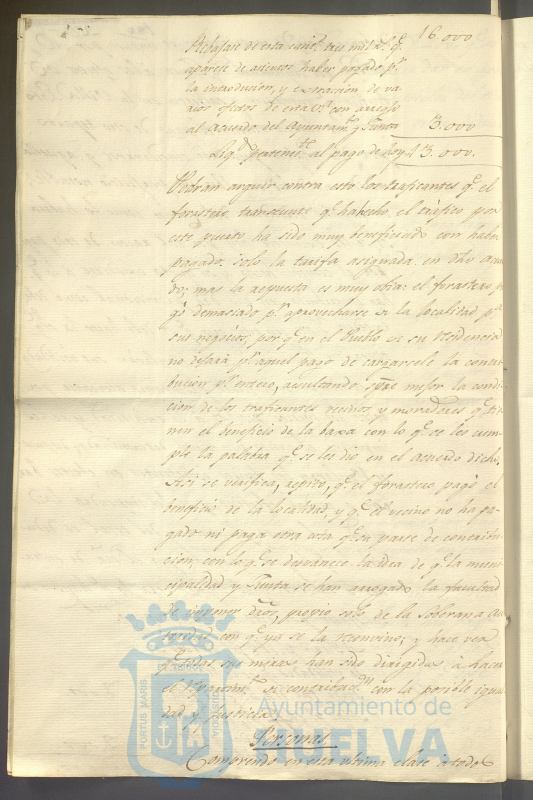 16.000
Rebajase de esta cantd. tres mil rs. qe.
aparece de asientos haber pagado pr.
la introducion, y extraccion de va-
rios efectos de esta va. con arreglo
al Acuerdo del Ayuntamto. y Junta 3.000
Liqo. perteneste. al pago de hoy 13.000.
Podran arguir contra esto los traficantes qe. el
forastero transeunte qe. ha hecho el trafico por
este puerto ha sido muy beneficiado con haber
pagado solo la tarifa asignada en dho acuer-
do; mas la repuesta es muy obvia: el forastero pa-
gó demasiado pr. aprovecharse de la localidad pa.
sus negocios, por qe. en el Pueblo de su residencia
no dejará pr. aquel pago de cargarcele la contri-
bucion pr. entero, resultando spre mejor la condi-
cion de los traficantes vecinos y moradores qe. tie-
nen el beneficio de la baxa con lo qe. se les cum-
ple la palabra qe. se les dio en el Acuerdo dicho.
Asi se verifica, repito, qe. el forastero pagó el
beneficio de la localidad, y qe. el vecino no ha pa-
gado ni paga otra cosa qe. su parte de contribu-
cion, con lo qe. se desvanece la idea de qe. la muni-
cipalidad y Junta se han arrogado la facultad
de imponer dros, propio solo de la Soberana Au-
toridad con qe. ya se la reconvino; y hace ver
qe. todas sus miras han sido dirigidas à hacer
el Repartimto. de contribucon. con la posible igual-
dad y Justicia.
Personas
Comprendo en esta ultima clase à todos
PORTUS MARIS
CUSTODIA
Ayuntamiento de
HUELVA